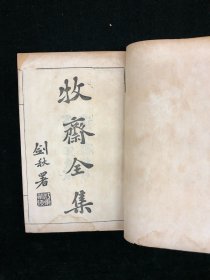 牧齋全集
劍秋署